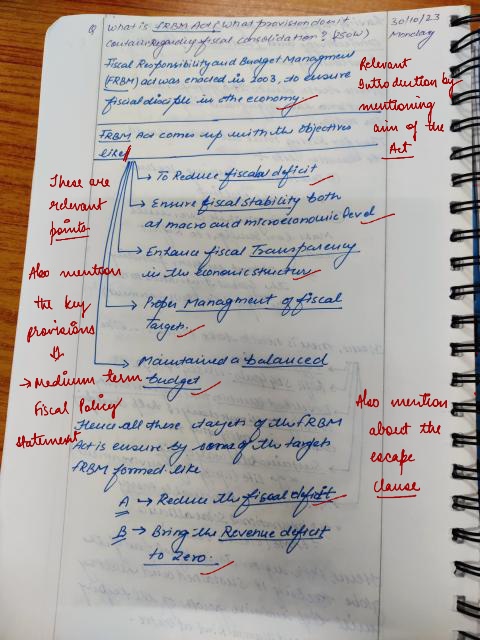 Q What is FRBM Act? What provision does it
contain regarding fiscal consolidation? (250W)
30/10/23
Monday
Fiscal Responsibility and Budget Managment
(FRBM) act was enacted in 2003, to ensure
fiscal disciple in the economy
Relevant
Introduction by
mentioning
aim of the
Act
FRBM Act comes up with the objectives
like
→ To Reduce fiscal deficit
→ Ensure fiscal stability both
at macro and microeconomic level
→ Enhance fiscal Transparency
in the economic structure
→ Proper Managment of fiscal
Targets.
→ Maintained a balanced
budget
These are
relevant
points
Also mention
the key
provisions
→ Medium term
Fiscal Policy
statement
Hence all these targets of the FRBM
Act is ensure by some of the targets
FRBM formed like
A → Reduce the fiscal deficit
B → Bring the Revenue deficit
to Zero.
Also mention
about the
escape
clause